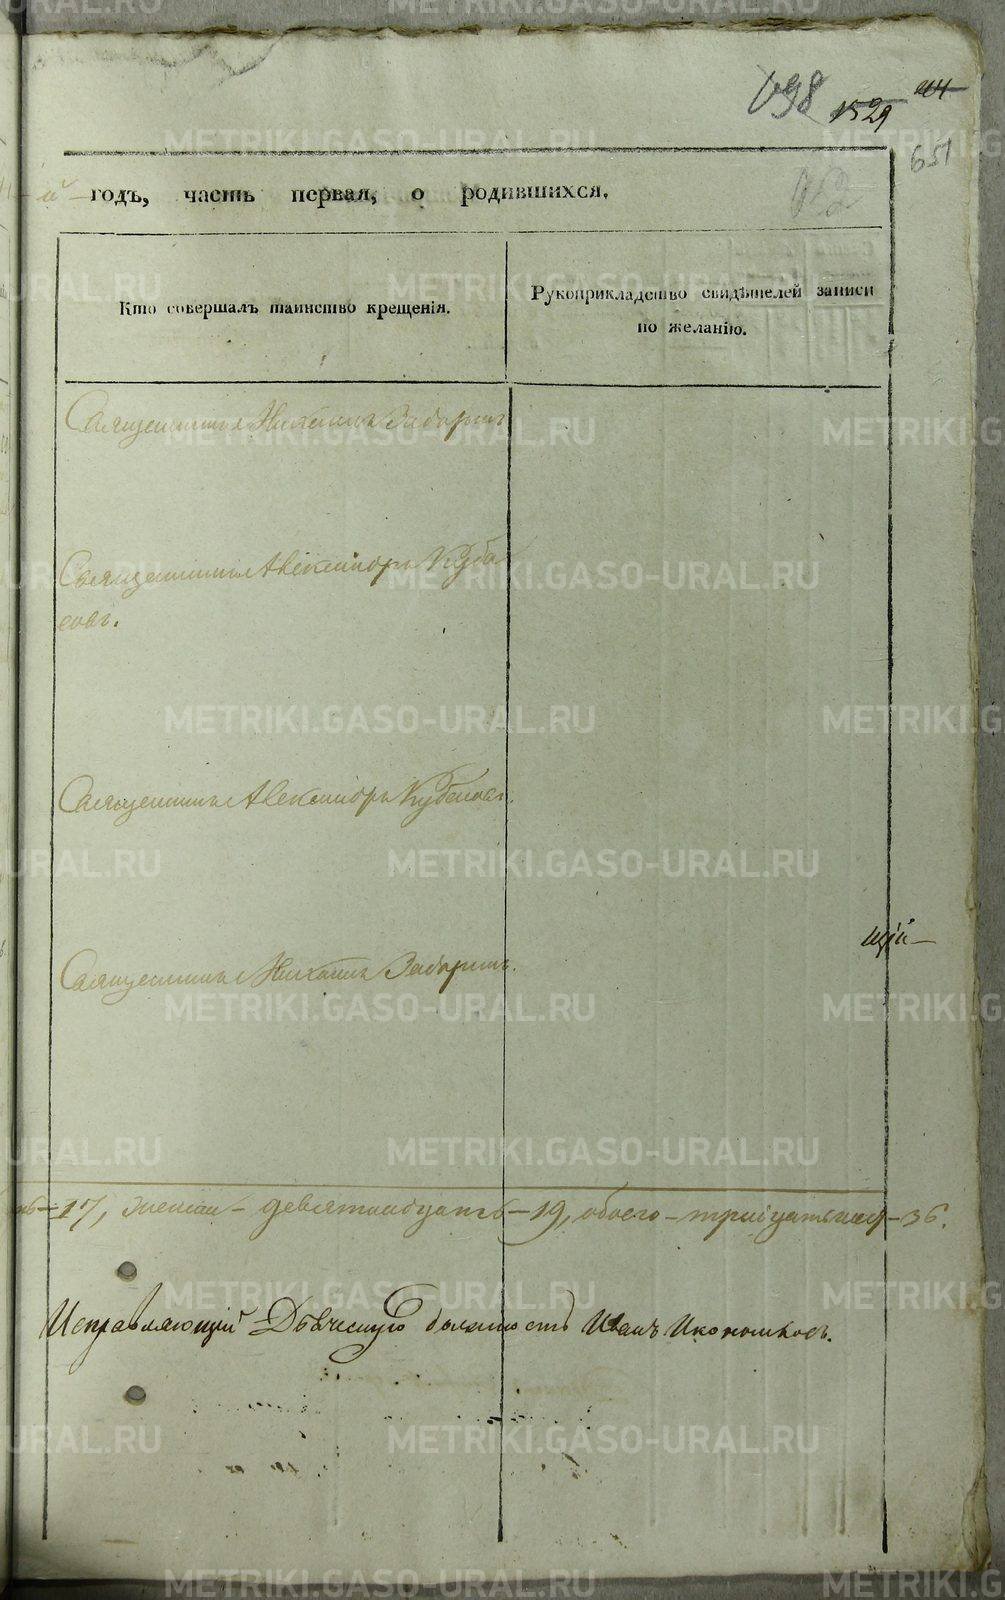 698 1529
651
годъ, часть первая, о родившихся.
Кто совершалъ таинство крещенія.
Рукоприкладство свидѣтелей записи
по желанію.
Священникъ Никита Заборинъ
Священникъ Александръ Куба
совъ.
Священникъ Александръ Кубасовъ.
Священникъ Заборинъ.
щій —
— 17, женска — девятнадцать — 19, обоего — тридцать — 36.
Исправляющій Дьяческую должность Иванъ Икономовъ.
METRIKI.GASO-URAL.RU